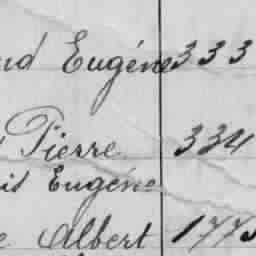 nd Eugène 333
Pierre 334
is Eugène
e Albert 1775